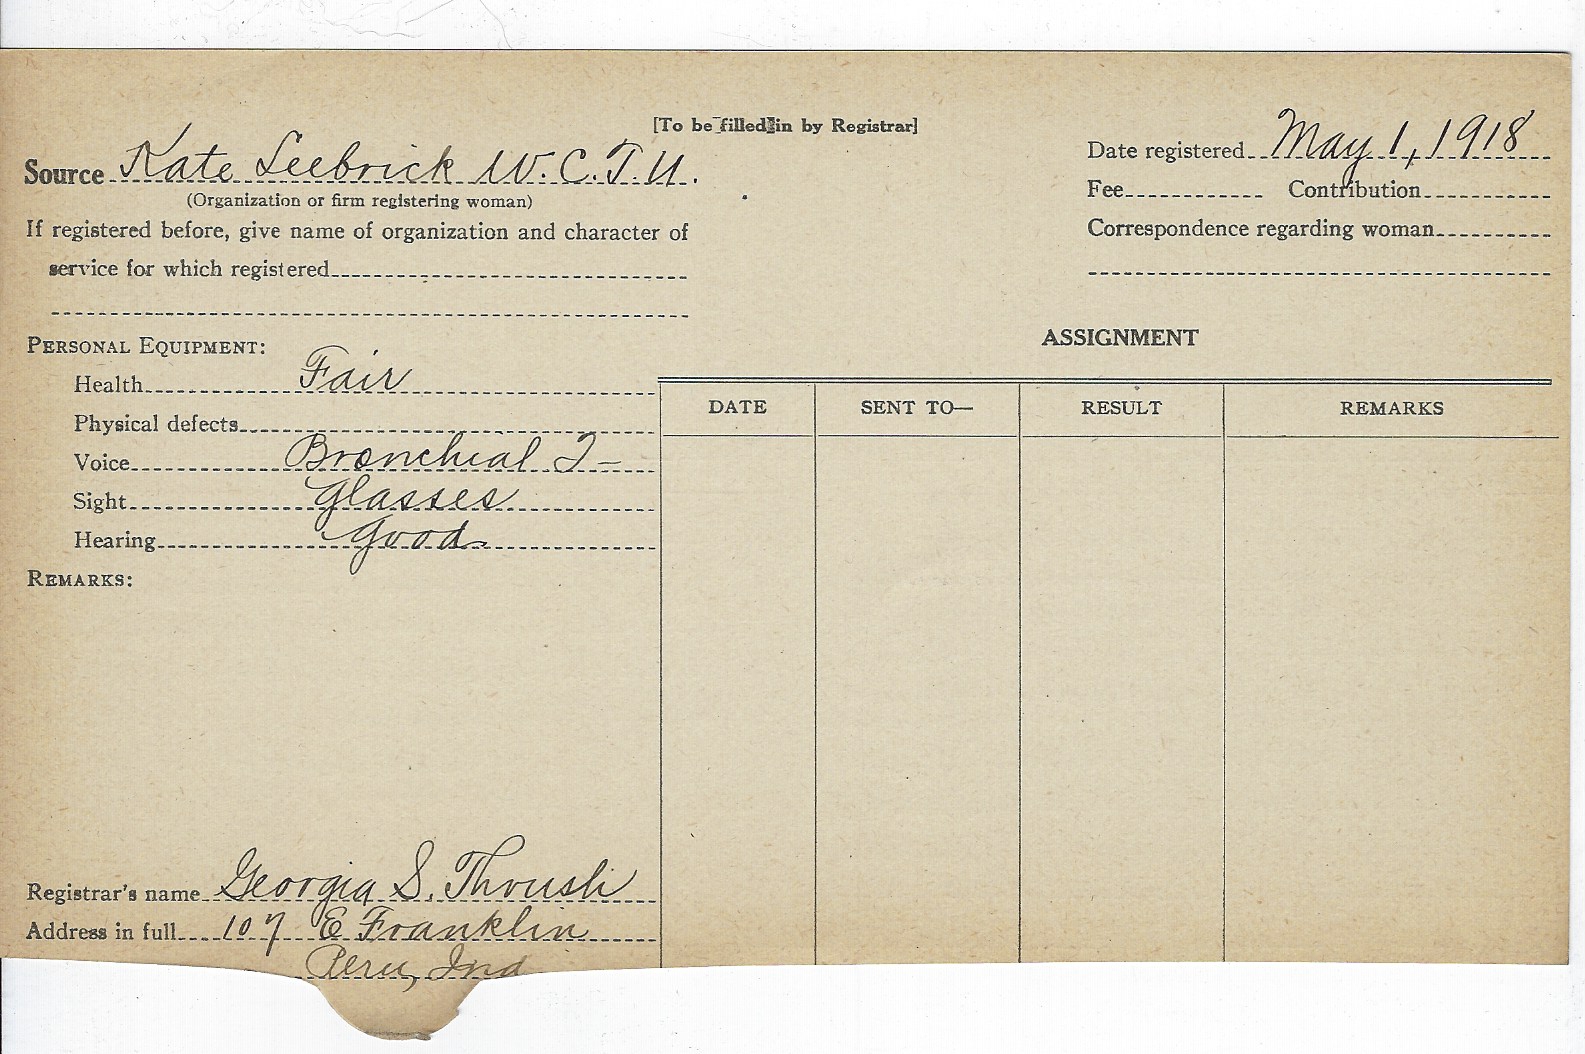 [To be filled in by Registrar]
Source Kate Seebrick W.C.T.U.
(Organization or firm registering woman)
If registered before, give name of organization and character of
service for which registered
Date registered May 1, 1918
Fee Contribution
Correspondence regarding woman
PERSONAL EQUIPMENT:
Health Fair
Physical defects
Voice Bronchial
Sight Glasses
Hearing Good
REMARKS:
Registrar's name Georgia S. Thrush
Address in full 107 E Franklin
Peru, Ind
ASSIGNMENT
DATE SENT TO— RESULT REMARKS